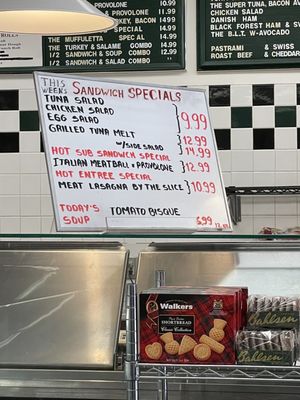 PROVOLONE 10.99
TURKEY, BACON 14.99
SPECIAL 14.99
THE MUFFULETTA 14.99
THE TURKEY & SALAME COMBO 14.99
1/2 SANDWICH & SOUP COMBO 12.99
THE SUPER TUNA, BACON AV
CHICKEN SALAD
DANISH HAM
BLACK FOREST HAM & SW
THE B.L.T. W-AVOCADO
PASTRAMI & SWISS
ROAST BEEF & CHEDDAR
THIS WEEKS SANDWICH SPECIALS
TUNA SALAD
CHICKEN SALAD 9.99
EGG SALAD
GRILLED TUNA MELT 12.99
w/SIDE SALAD 14.99
HOT SUB SANDWICH SPECIAL
ITALIAN MEATBALL & PROVOLONE 12.99
HOT ENTREE SPECIAL
MEAT LASAGNA BY THE SLICE 10.99
TODAY'S
SOUP TOMATO BISQUE 5.99
Walkers
SHORTBREAD
Classic Collection
Bahlsen
Bahlsen